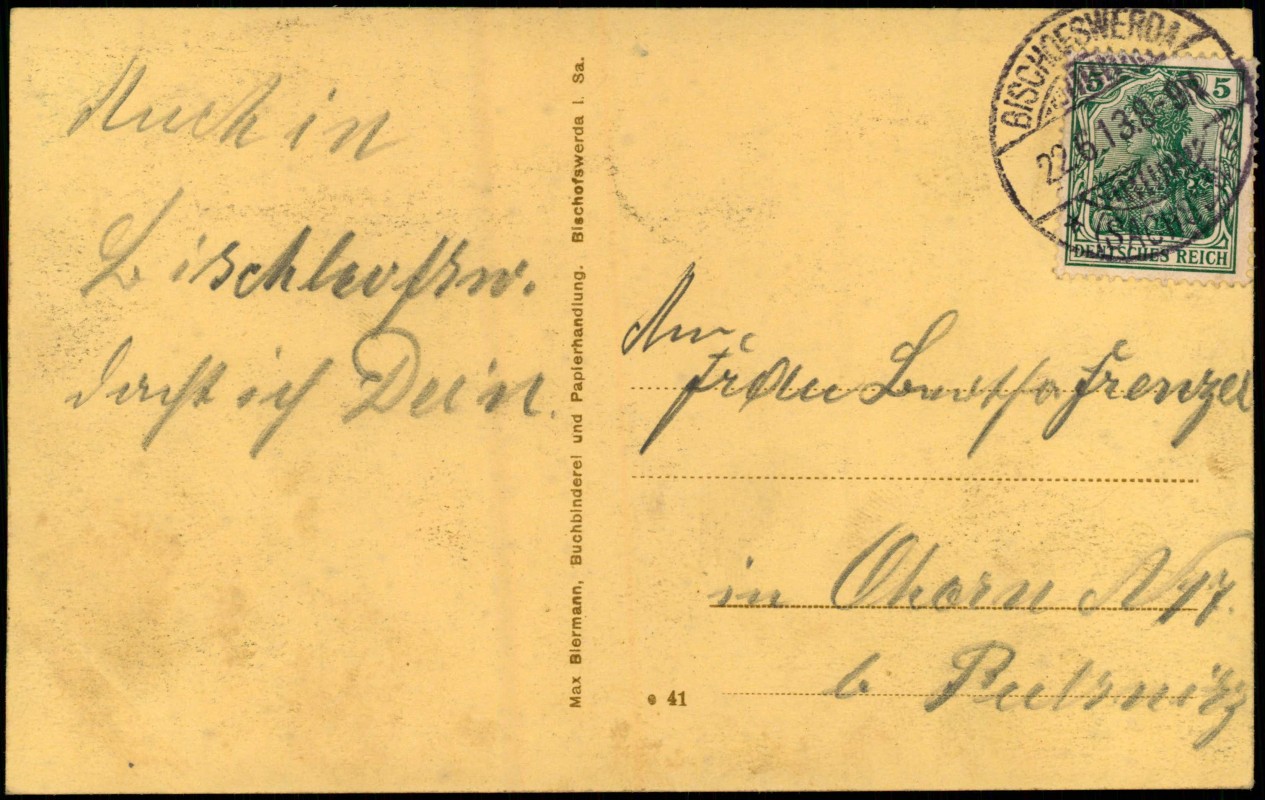 Auch in
Bischhofsw.
dacht ich Dein.
Max Biermann, Buchbinderei und Papierhandlung. Bischofswerda i. Sa.
BISCHOFSWERDA
22.5.13.8-9
(SACHS.)
5 5
DEUTSCHES REICH
An
Frau Bertha Frenzel
in Ohorn N 17.
b. Pulsnitz
41